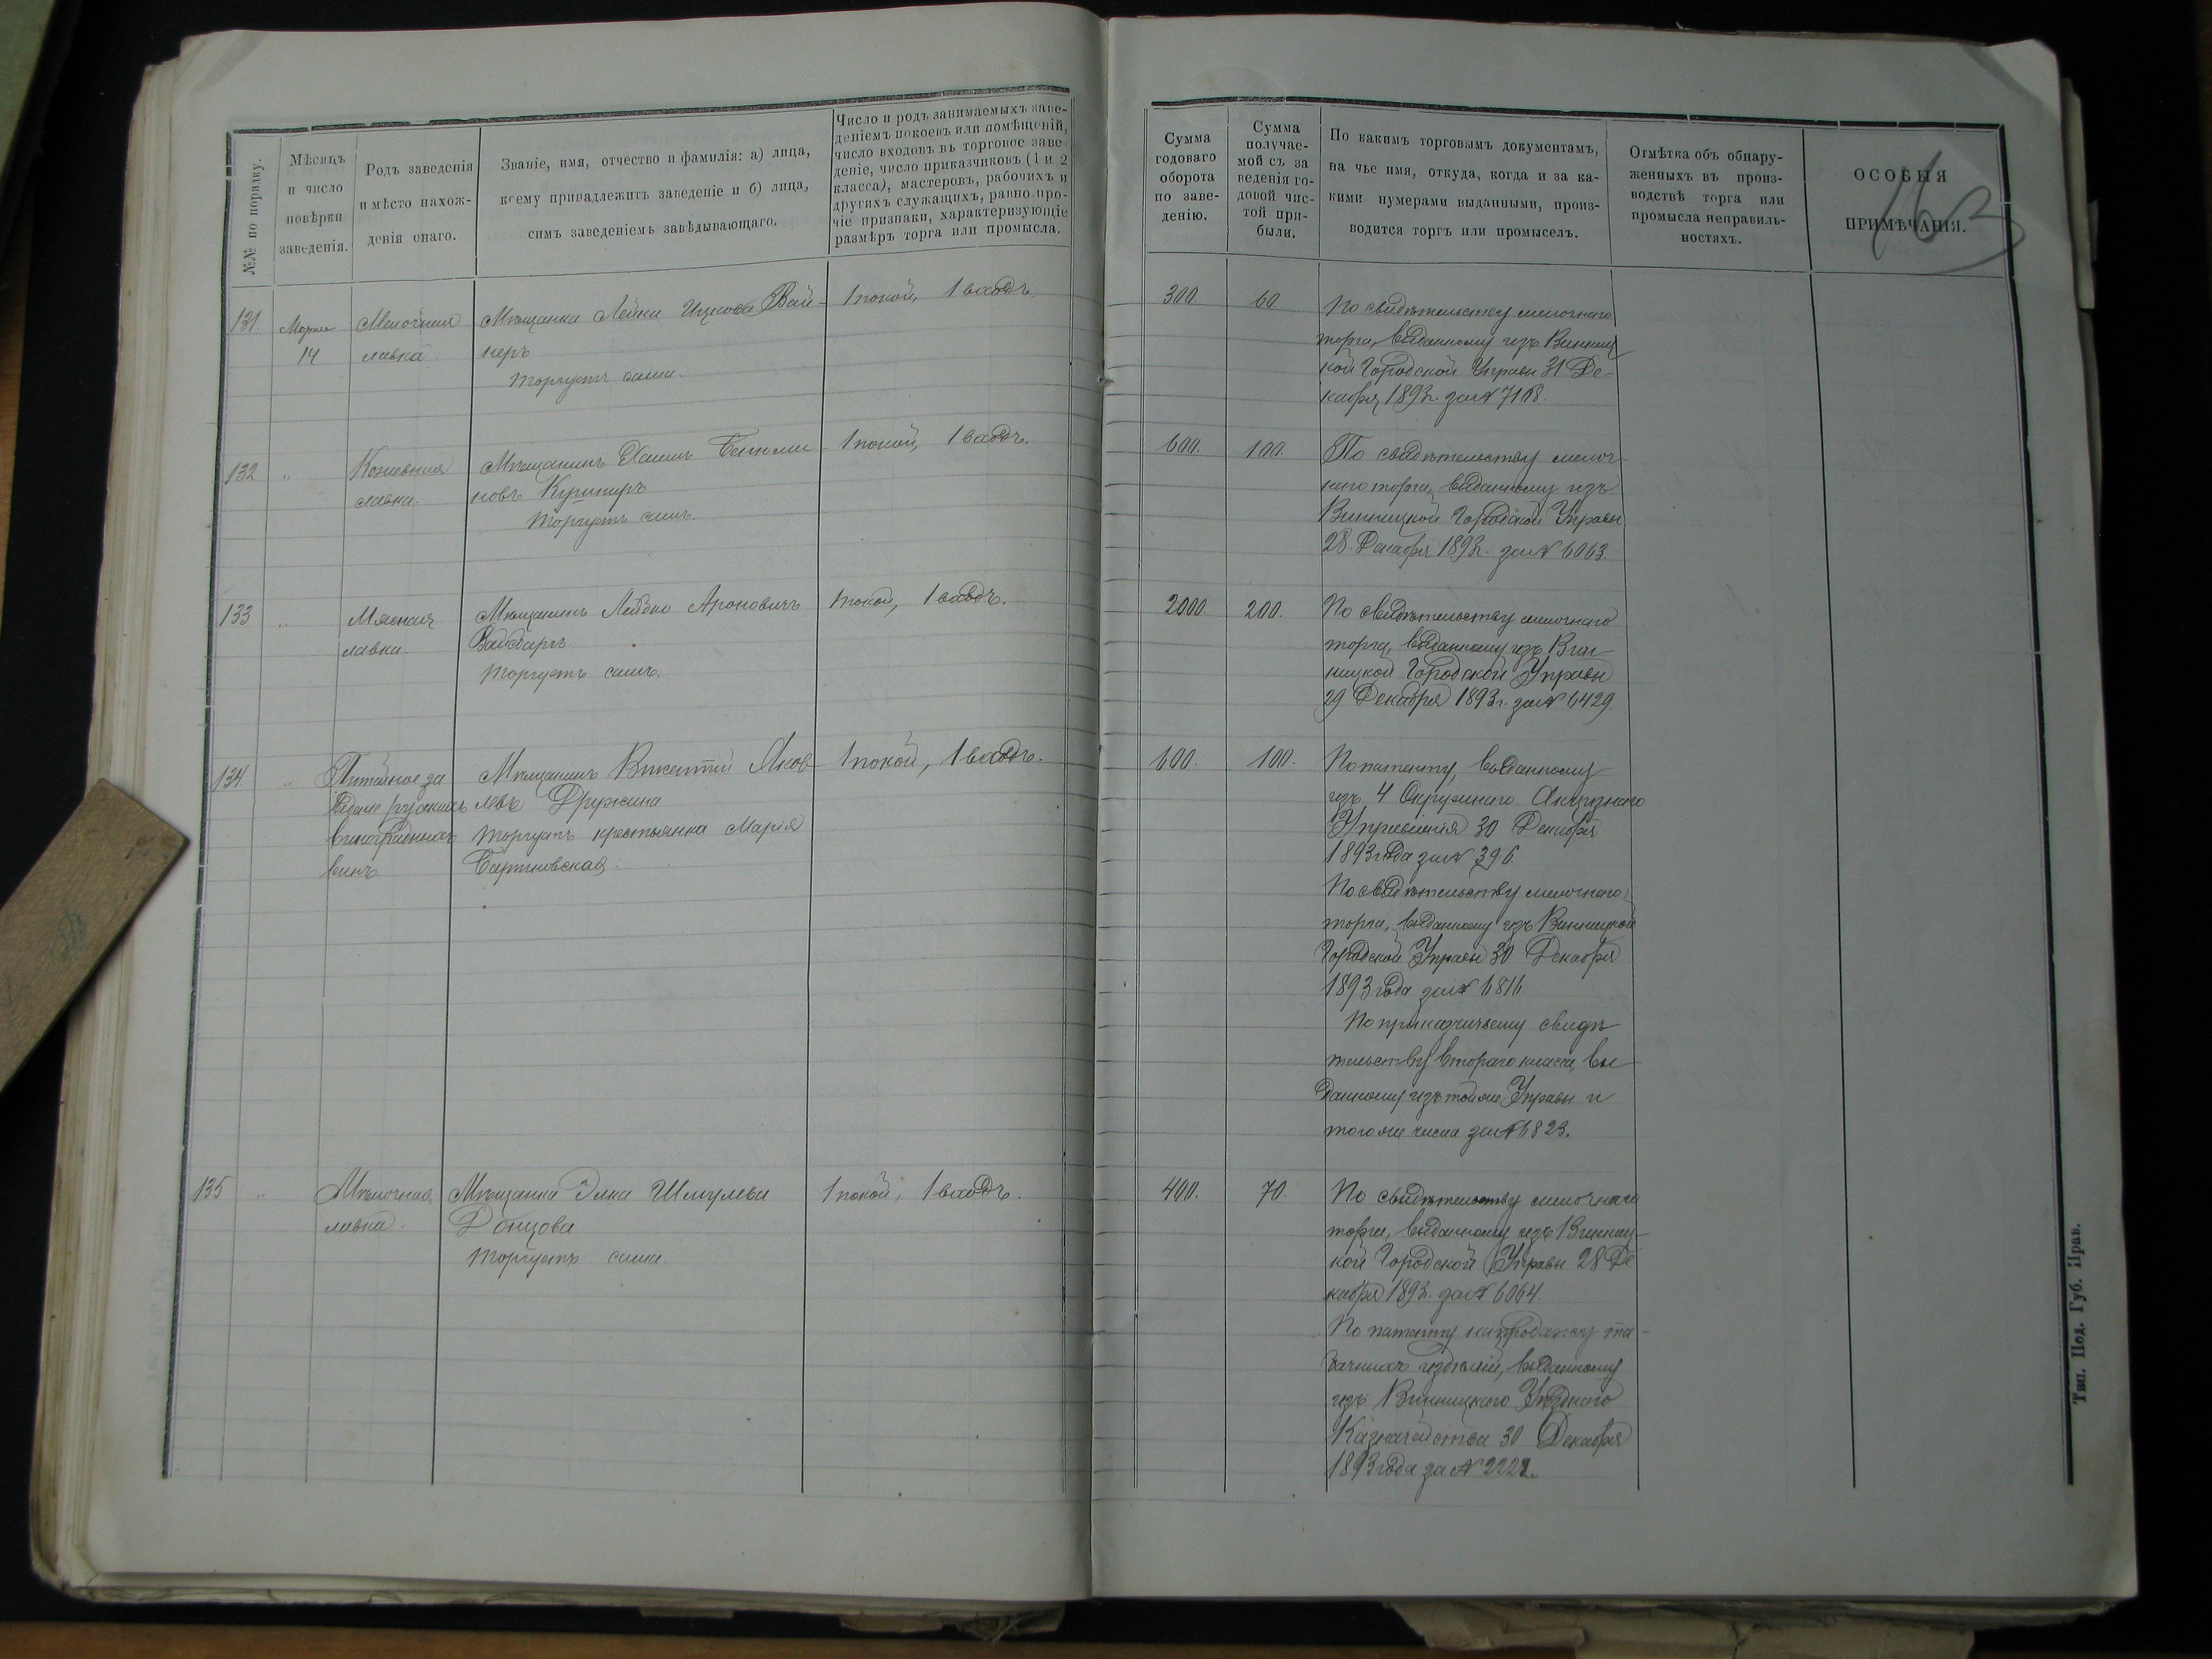 №№ по порядку.
Мѣсяцъ
и число
повѣрки
заведенія.
Родъ заведенія
и мѣсто нахож-
денія онаго.
Званіе, имя, отчество и фамилія: а) лица,
коему принадлежитъ заведеніе и б) лица,
симъ заведеніемъ завѣдывающаго.
Число и родъ занимаемыхъ заве-
деніемъ покоевъ или помѣщеній,
число входовъ въ торговое заве-
деніе, число приказчиковъ (1 и 2
класса), мастеровъ, рабочихъ и
другихъ служащихъ, равно про-
чіе признаки, характеризующіе
размѣръ торга или промысла.
Сумма
годоваго
оборота
по заве-
денію.
Сумма
получае-
мой съ за
веденія го-
довой чис-
той при-
были.
По какимъ торговымъ документамъ,
на чье имя, откуда, когда и за ка-
кими нумерами выданными, произ-
водится торгъ или промыселъ.
Отмѣтка объ обнару-
женныхъ въ произ-
водствѣ торга или
промысла неправиль-
ностяхъ.
ОСОБЫЯ
ПРИМѢЧАНІЯ.
163
131
Марта
14
Мелочная
лавка
Мѣщанка Лейка Ицкова Вай-
неръ
Торгуетъ сама.
1 покой, 1 входъ
300
60
По свидѣтельству мелочнаго
торга, выданному изъ Винниц
кой Городской Управы 31 Де-
кабря 1893г. за № 7168.
132
"
Кожевная
лавка.
Мѣщанинъ Хаимъ Беньоми
новъ Кушниръ
Торгуетъ самъ.
1 покой, 1 входъ.
600.
100.
По свидѣтельству мелоч-
наго торга, выданному изъ
Винницкой Городской Управы
28 Декабря 1893г. за № 6063.
133
"
Мясная
лавка.
Мѣщанинъ Лейбко Ароновичъ
Торгуетъ самъ.
1 покой, 1 входъ.
2000.
200.
По свидѣтельству мелочнаго
торга, выданному изъ Вин-
ницкой Городской Управы
29 Декабря 1893г. за № 6429.
134
"
Питейное за
веденіе русскихъ
виноградныхъ
винъ.
Мѣщанинъ Викентій Яков-
левъ Дружина
Торгуетъ крестьянка Марія
1 покой, 1 входъ.
600.
100.
По патенту, выданному
изъ 4 Окружнаго Акцизнаго
Управленія 30 Декабря
1893 года за № 396
По свидѣтельству мелочнаго
торга, выданному изъ Винницкой
Городской Управы 30 Декабря
1893 года за № 6816
По приказчичьему свидѣ
тельству втораго класса, вы-
данному изъ той же Управы и
того же числа за № 6823.
135
"
Мелочная
лавка.
Мѣщанка Элка Шмулева
Донцова
Торгуетъ сама.
1 покой, 1 входъ.
400.
70.
По свидѣтельству мелочнаго
торга, выданному изъ Винниц-
кой Городской Управы 28 Де
кабря 1893г. за № 6064.
По патенту на продажу та-
бачныхъ издѣлій, выданному
изъ Винницкаго Уѣзднаго
Казначейства 30 Декабря
1893 года за № 2222.
Тип. Под. Губ. Прав.